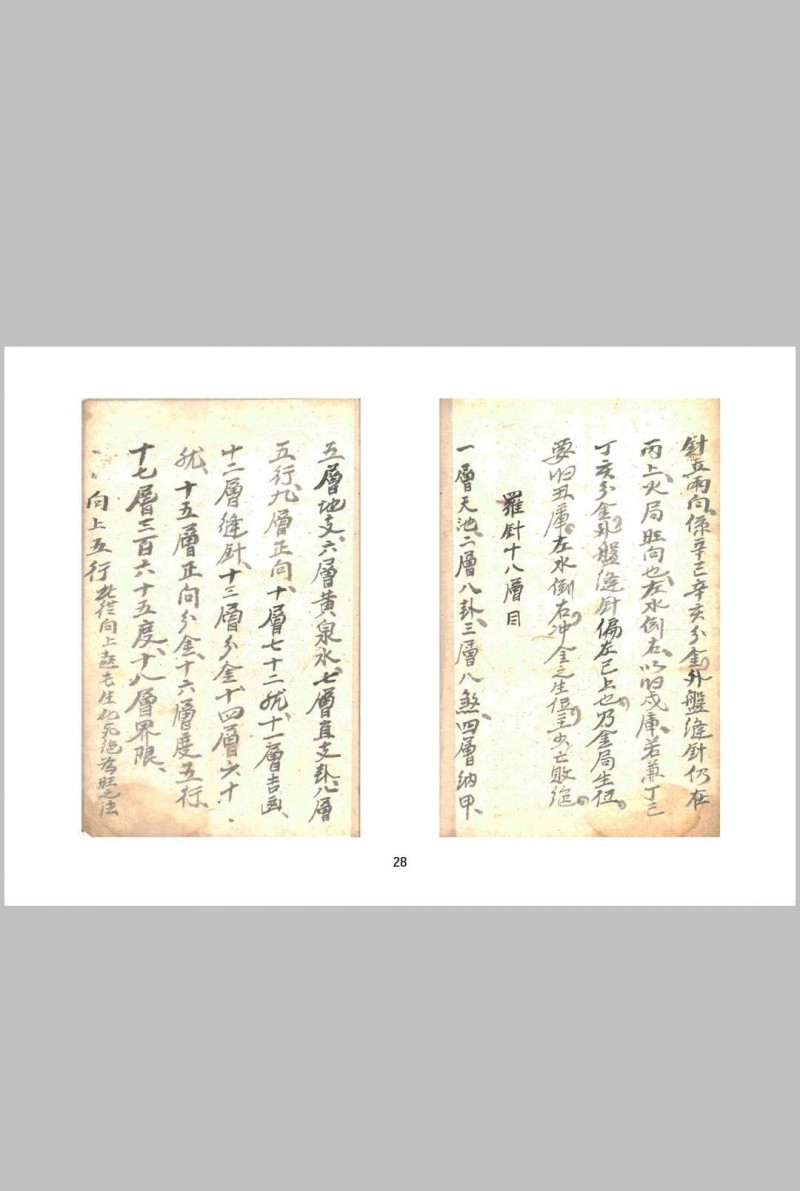 針立丙向係辛巳辛亥分金外盤縫針仍在
丙上火局旺向也左水倒右以归戍庫若兼丁巳
丁亥分金外盤縫針偏左巳上也乃金局生位
要归丑庫左水倒右冲金之生位主少亡敗绝
羅針十八層目
一層天池二層八卦三層八煞四層納甲
五層地支六層黄泉水七層直支卦八層
五行九層正向十層七十二龙十一層吉凶
十二層縫針十三層分金十四層六十
龙十五層正向分金十六層度五行
十七層三百六十五度十八層界限
向上五行 從向上起長生死绝旺之法
28